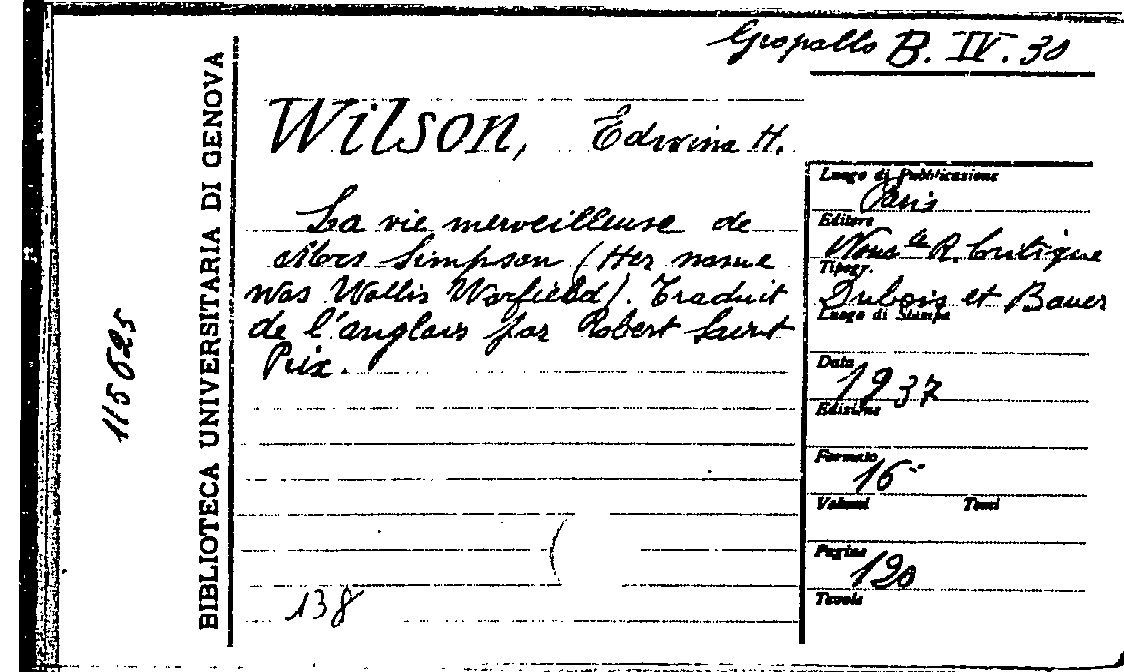 Gropallo B. IV. 30
BIBLIOTECA UNIVERSITARIA DI GENOVA
115625
Wilson, Edwina H.
La vie merveilleuse de
Mors Simpson (Her name
was Wallis Warfield). Traduit
de l'anglais par Robert Saint
Prix.
138
Luogo di Pubblicazione
Paris
Editore
Nouv. R. Critique
Tipogr.
Dubois et Bauer
Luogo di Stampa
Data
1937
Edizione
Formato
16°
Volumi Tomi
Pagine
120
Tavole